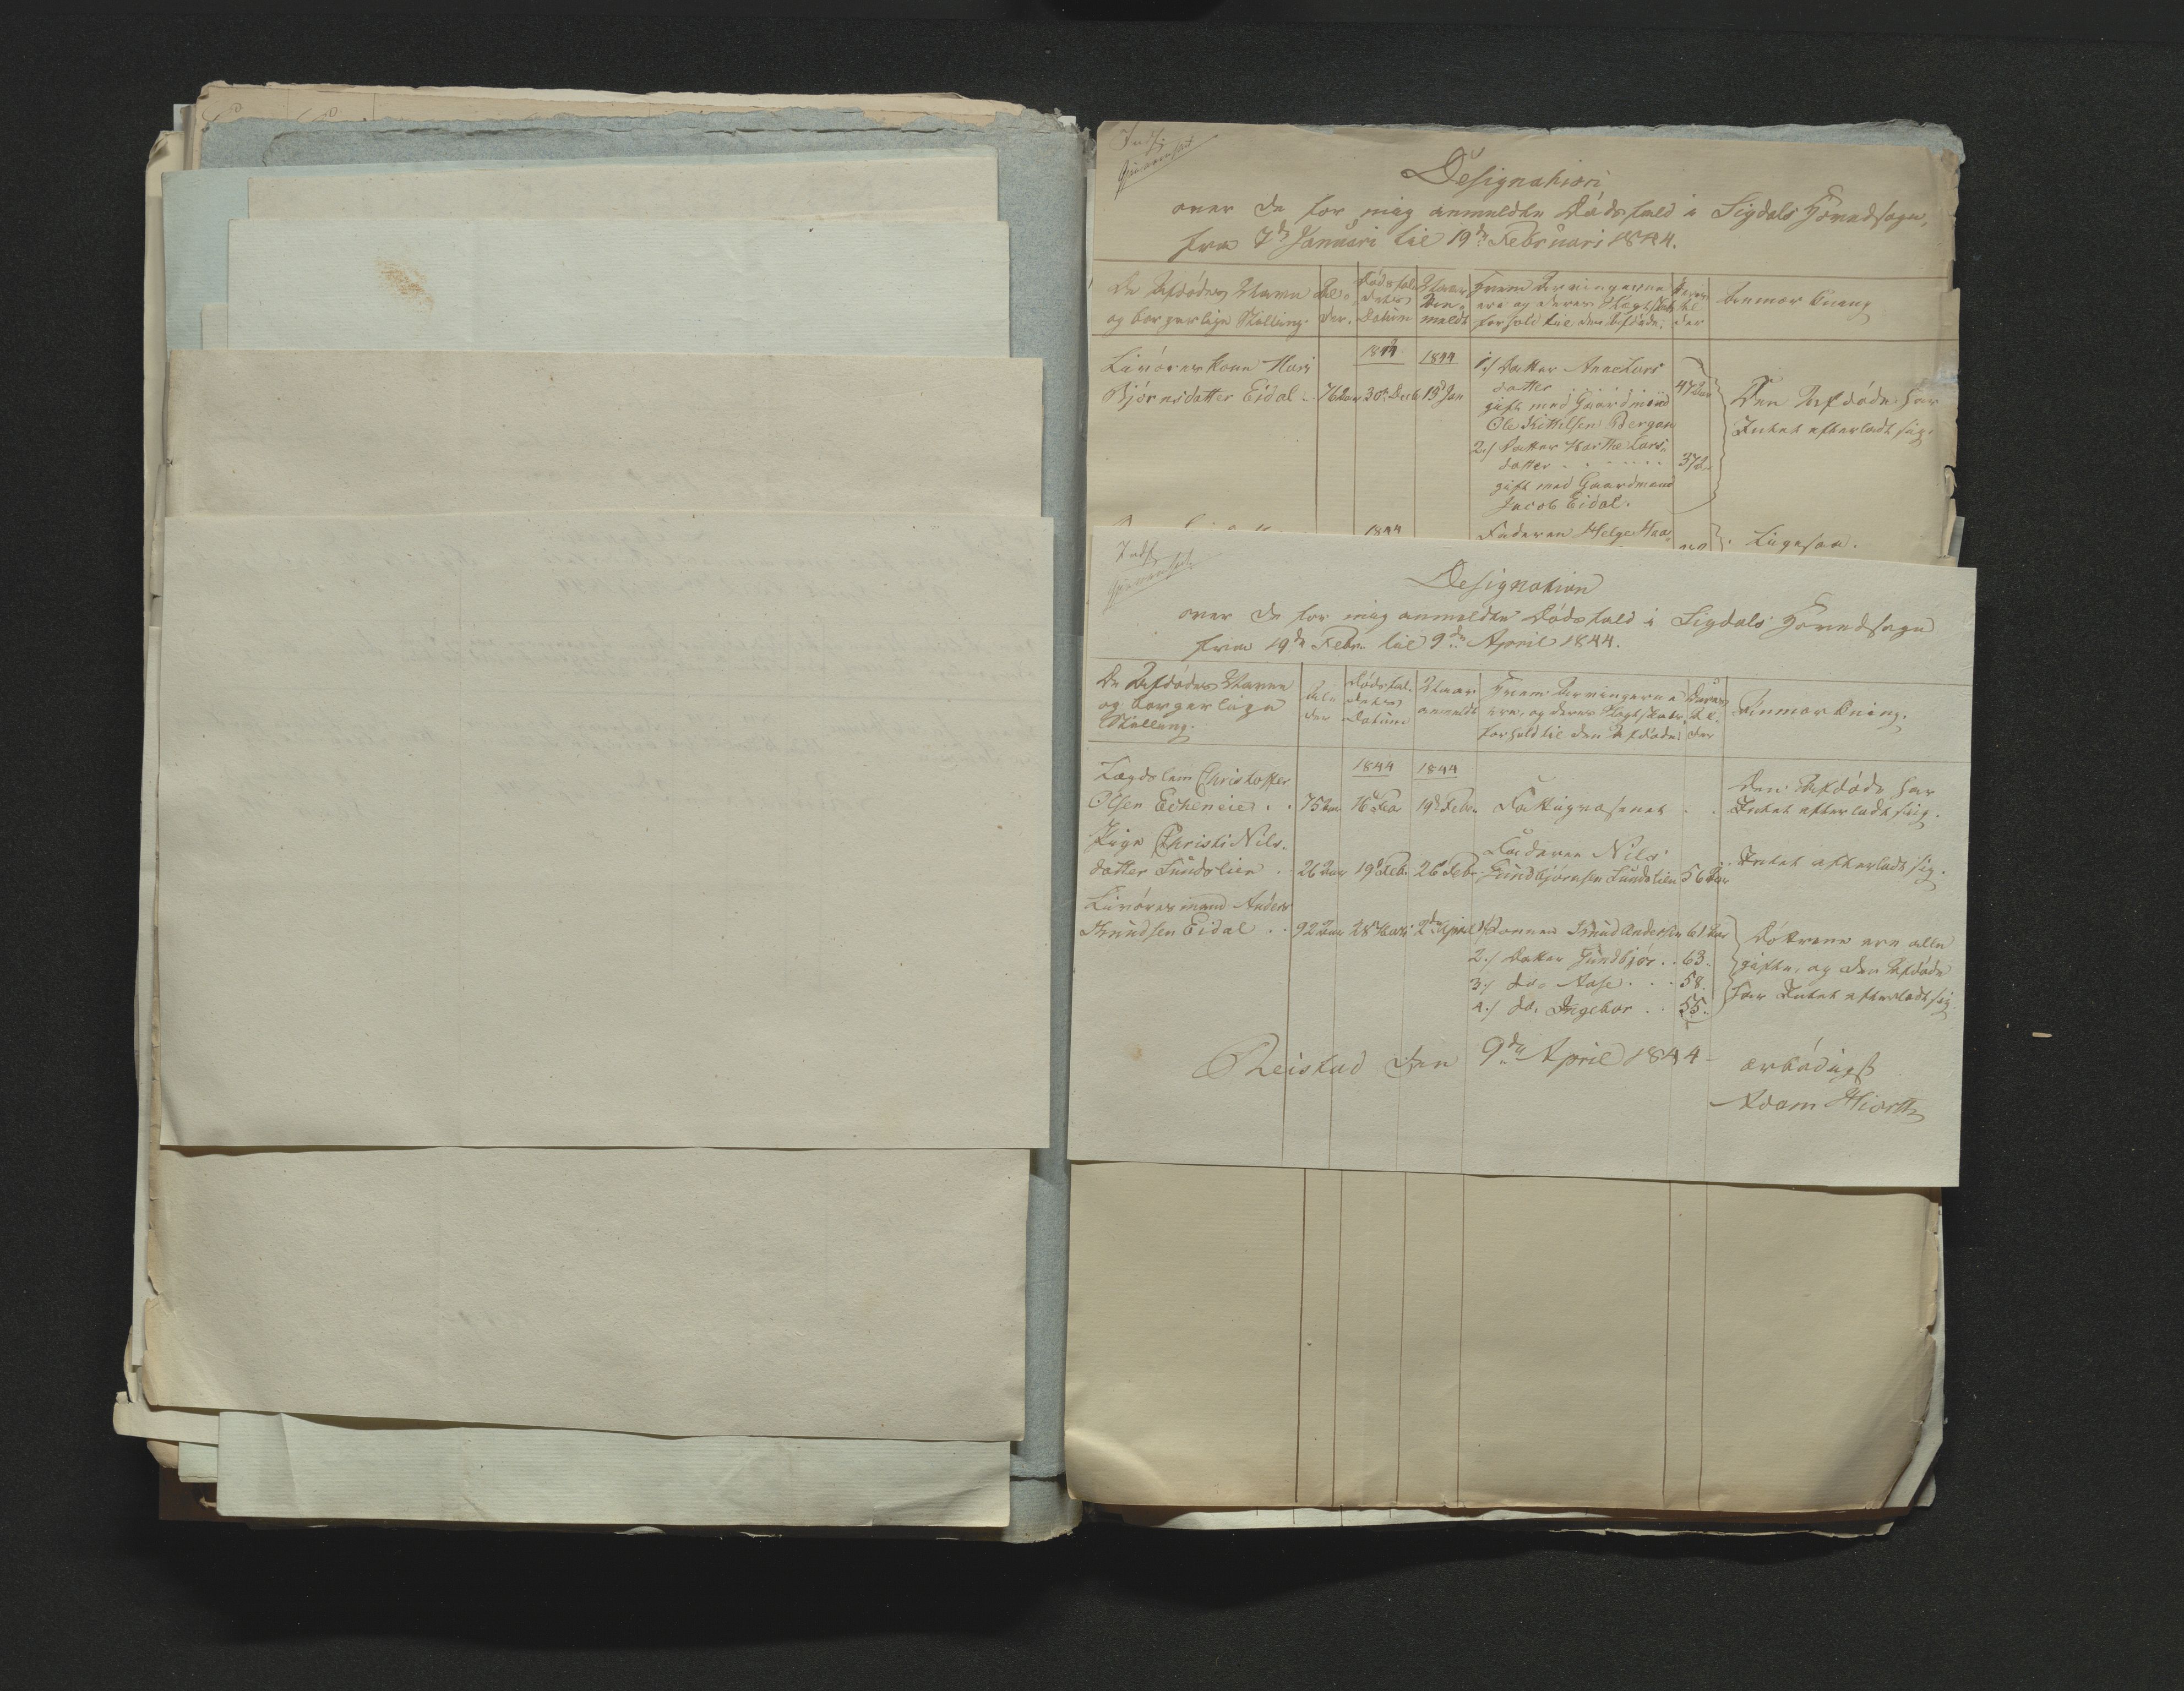 Indf.
Designation
over de for mig anmeldte Dødsfald i Sigdals Hovedsogn,
fra 7de Januari til 19de Februari 1844.
De Afdødes Navn
og borgerlige Stilling.
Al-
der.
Dødsfal-
dets
Datum
Naar
An-
meldt
Hvem Arvingerne
ere og deres Slægtskabs
forhold til den Afdøde.
Deres
Al
der
Anmærkning
Livøreskone Mari
Bjørnsdatter Eidal
76 Aar
1844
30te Decb
1844
19d Jan
1./ Datter Anne Lars
datter . . . . . . 47 Aar
gift med Gaardmand
Ole Kittilsen Bergan
2./ Datter Marthe Lars-
datter . . . . . . 37 A.
gift med Gaardmand
Jacob Eidal.
Den Afdøde har
Intet efterladt sig.
1844
Faderen Helge Haa
Ligesaa.
Indf.
Designation
over de for mig anmeldte Dødsfald i Sigdals Hovedsogn
fra 19de Febr. til 9de April 1844.
De Afdødes Navne
og borgerlige
Stilling.
Al-
der
Dødsfal-
dets
Datum
Naar
anmeldt
Hvem Arvingerne
ere, og deres Slægtskabs
forhold til den Afdøde
Deres
Al-
der
Anmærkning.
1844
1844
Lægdslem Christoffer
Olsen Echeneie . . 75 Aar 16d Feb 19d Febr. Fattigvæsenet . .
Den Afdøde har
Intet efterladt sig.
Pige Christi Nils-
datter Lundslien . 26 Aar 19d Feb. 26d Febr.
Faderen Nils
Gundbjørnsen Lundslien 56 Aar
Intet efterladt sig.
Livøresmand Anders
Knudsen Eidal . . 92 Aar 28d Marts 2den April 1./ Sønnen Knud Andersen 61 Aar
2./ Datter Gundbjør . . 63.
3./ do. Aase . . . 58.
4./ do. Ingebor . . 55.
Døttrene ere alle
gifte, og den Afdøde
har Intet efterladt sig
Reistad den 9de April 1844
ærbødigst
Adam Hiorth